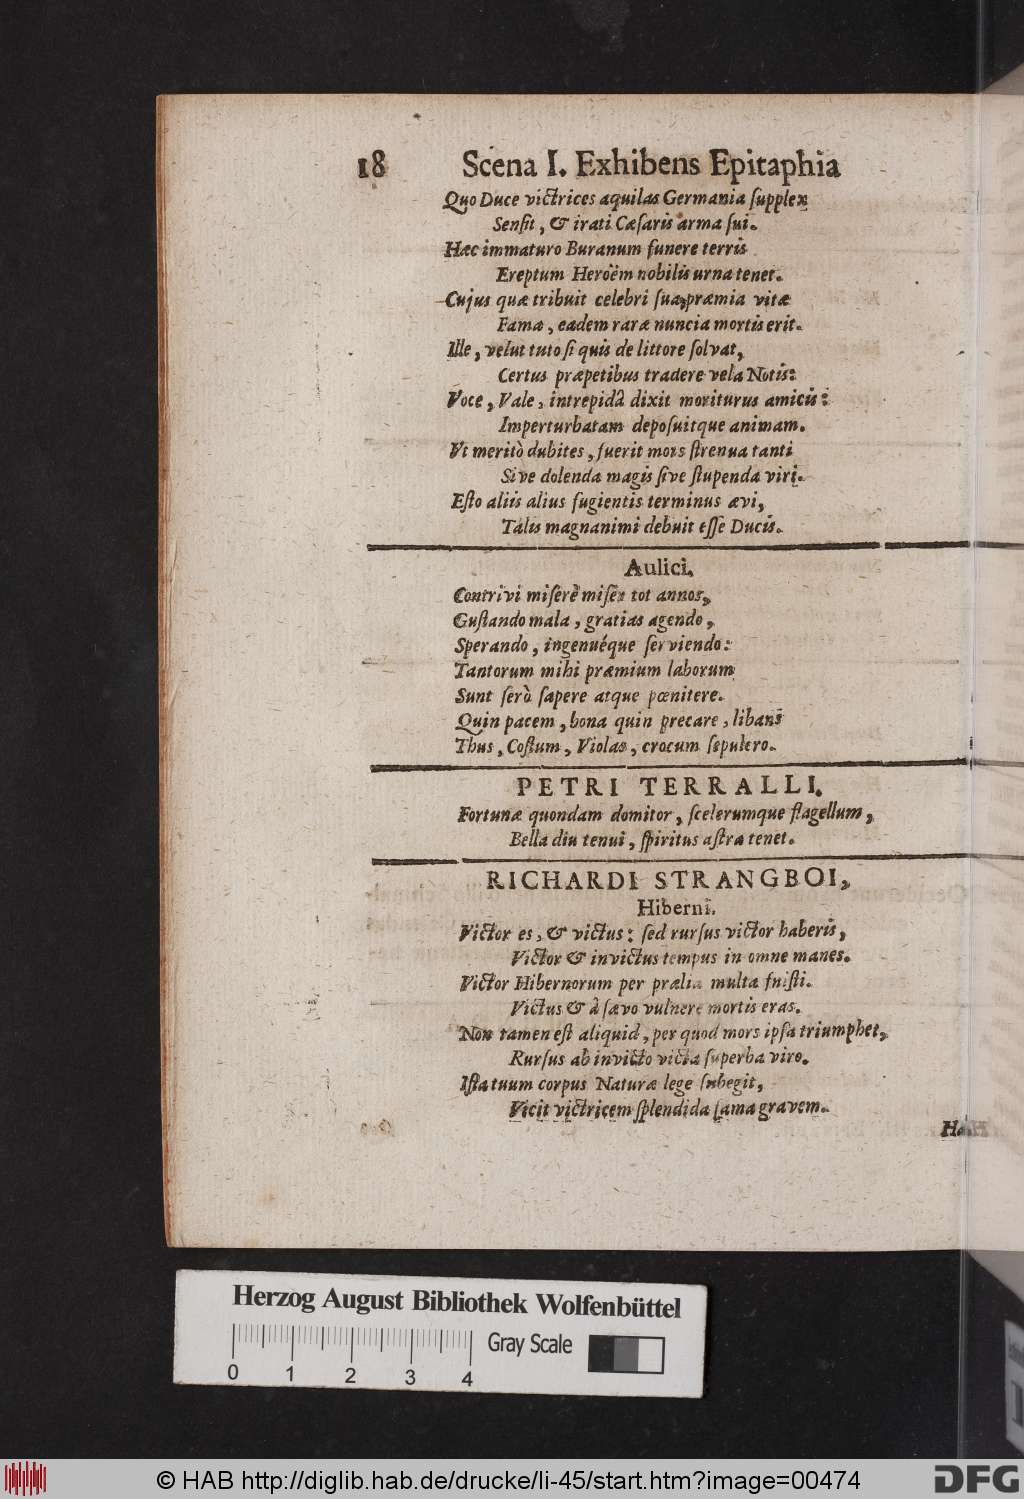 18 Scena I. Exhibens Epitaphia
Quo Duce victrices aquilas Germania ſupplex
Senſit, & irati Cæſaris arma ſui.
Hæc immaturo Buranum funere terris
Ereptum Heroëm nobilis urna tenet.
Cujus quæ tribuit celebri ſua præmia vitæ
Fama, eadem raræ nuncia mortis erit.
Ille, velut tuto ſi quis de littore ſolvat,
Certus præpetibus tradere vela Notis:
Voce, Vale, intrepidâ dixit moriturus amicis:
Imperturbatam depoſuitque animam.
Vt meritò dubites, fuerit mors ſtrenua tanti
Sive dolenda magis ſive ſtupenda viri.
Eſto aliis alius fugientis terminus ævi,
Talis magnanimi debuit eſſe Ducis.
Aulici.
Contrivi miſerè miſer tot annos,
Guſtando mala, gratias agendo,
Sperando, ingenuéque ſerviendo:
Tantorum mihi præmium laborum
Sunt ſerò ſapere atque pœnitere.
Quin pacem, bona quin precare, libans
Thus, Coſtum, Violas, crocum ſepulcro.
PETRI TERRALLI.
Fortunæ quondam domitor, ſcelerumque flagellum,
Bella diu tenui, ſpiritus aſtra tenet.
RICHARDI STRANGBOI,
Hiberni.
Victor es, & victus: ſed rurſus victor haberis,
Victor & invictus tempus in omne manes.
Victor Hibernorum per prælia multa fuiſti.
Victus & à ſævo vulnere mortis eras.
Non tamen eſt aliquid, per quod mors ipſa triumphet,
Rurſus ab invicto victa ſuperba viro.
Iſta tuum corpus Naturæ lege ſubegit,
Vicit victricem ſplendida fama gravem.
Herzog August Bibliothek Wolfenbüttel
Gray Scale
0 1 2 3 4
© HAB http://diglib.hab.de/drucke/li-45/start.htm?image=00474
DFG